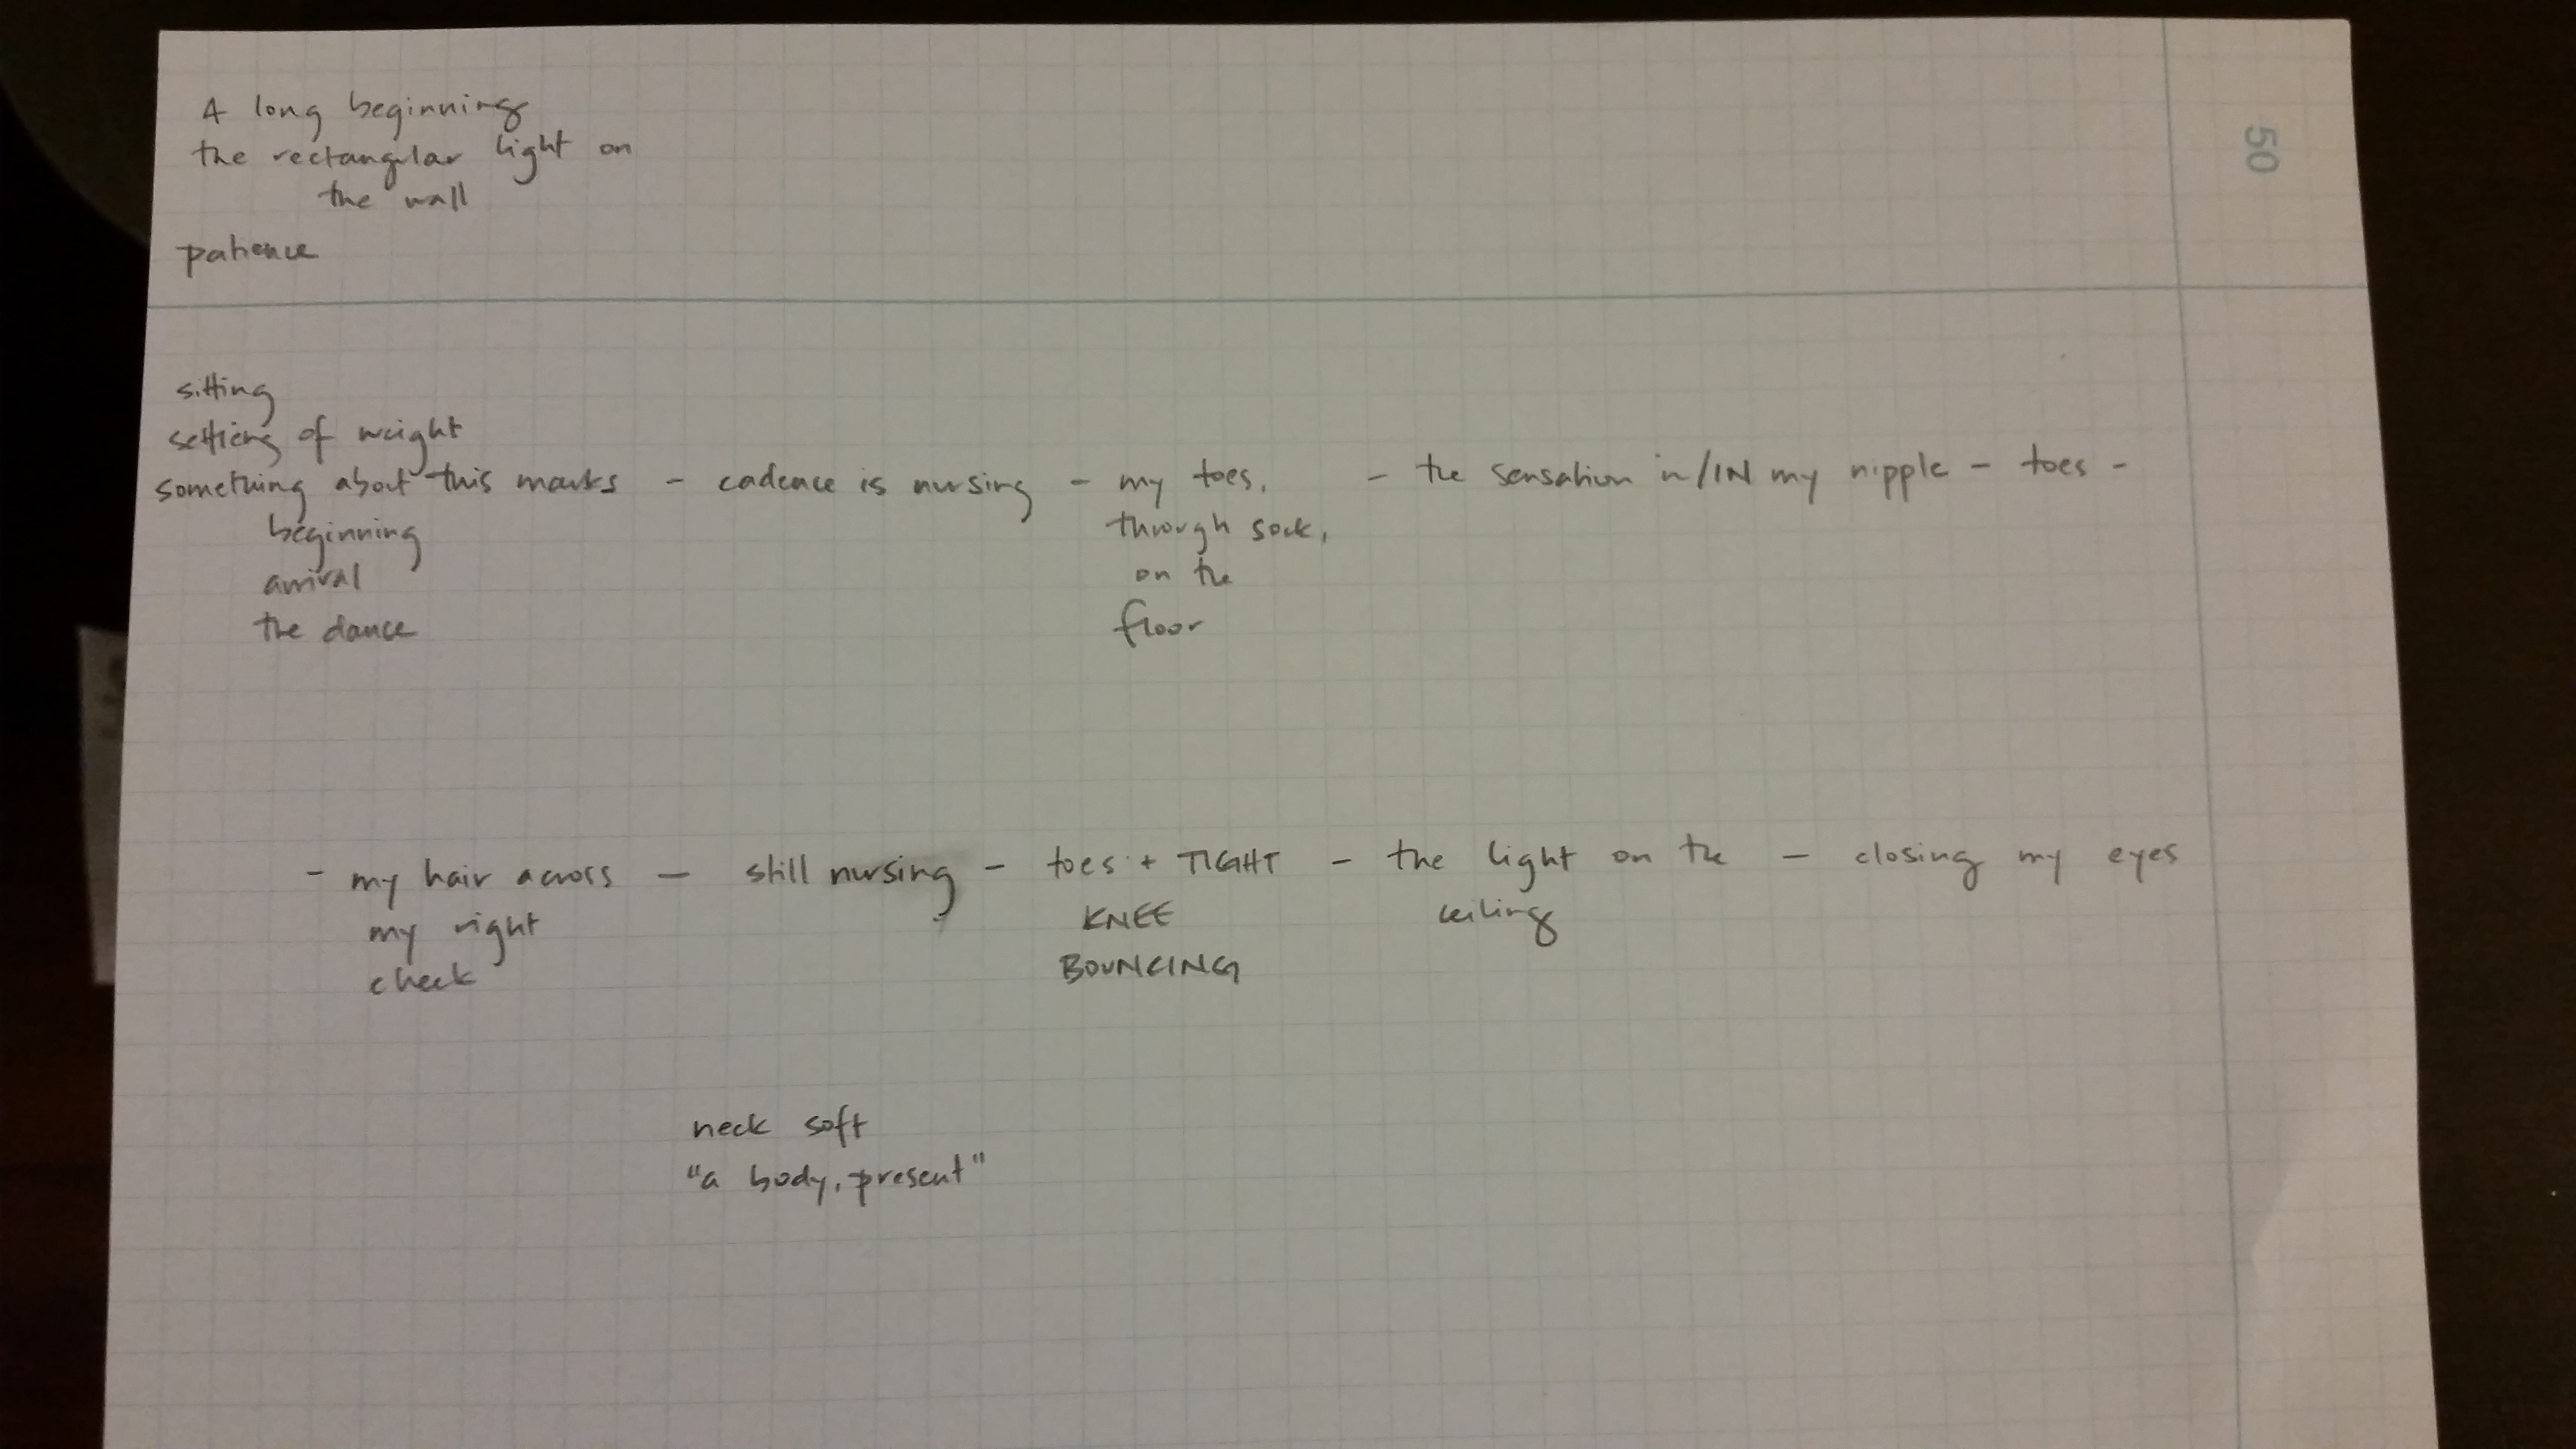 A long beginning
the rectangular light on
the wall
patience
50
sitting
settling of weight
something about this marks - cadence is nursing - my toes, - the sensation in/IN my nipple - toes -
beginning
through sock,
arrival
on the
the dance
floor
- my hair across - still nursing - toes + TIGHT - the light on the - closing my eyes
my right
KNEE
ceiling
cheek
BOUNCING
neck soft
"a body, present"